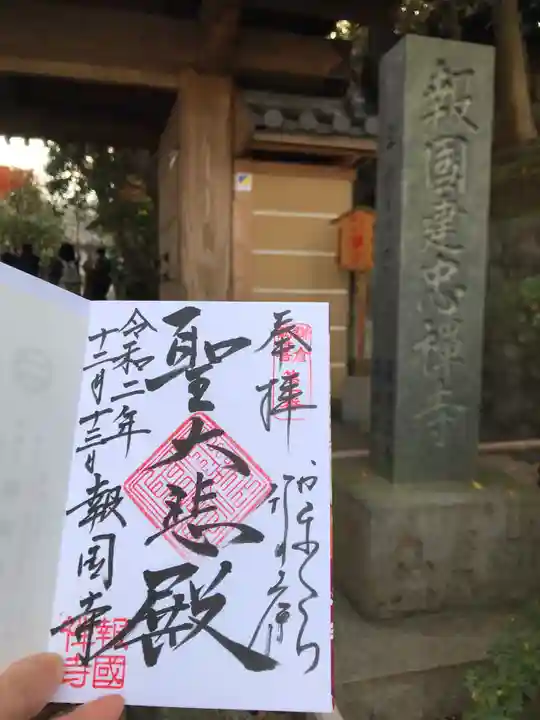 報國建忠禅寺
奉拝
聖大悲殿
令和二年
十二月十三日
報国寺
報國
禅寺